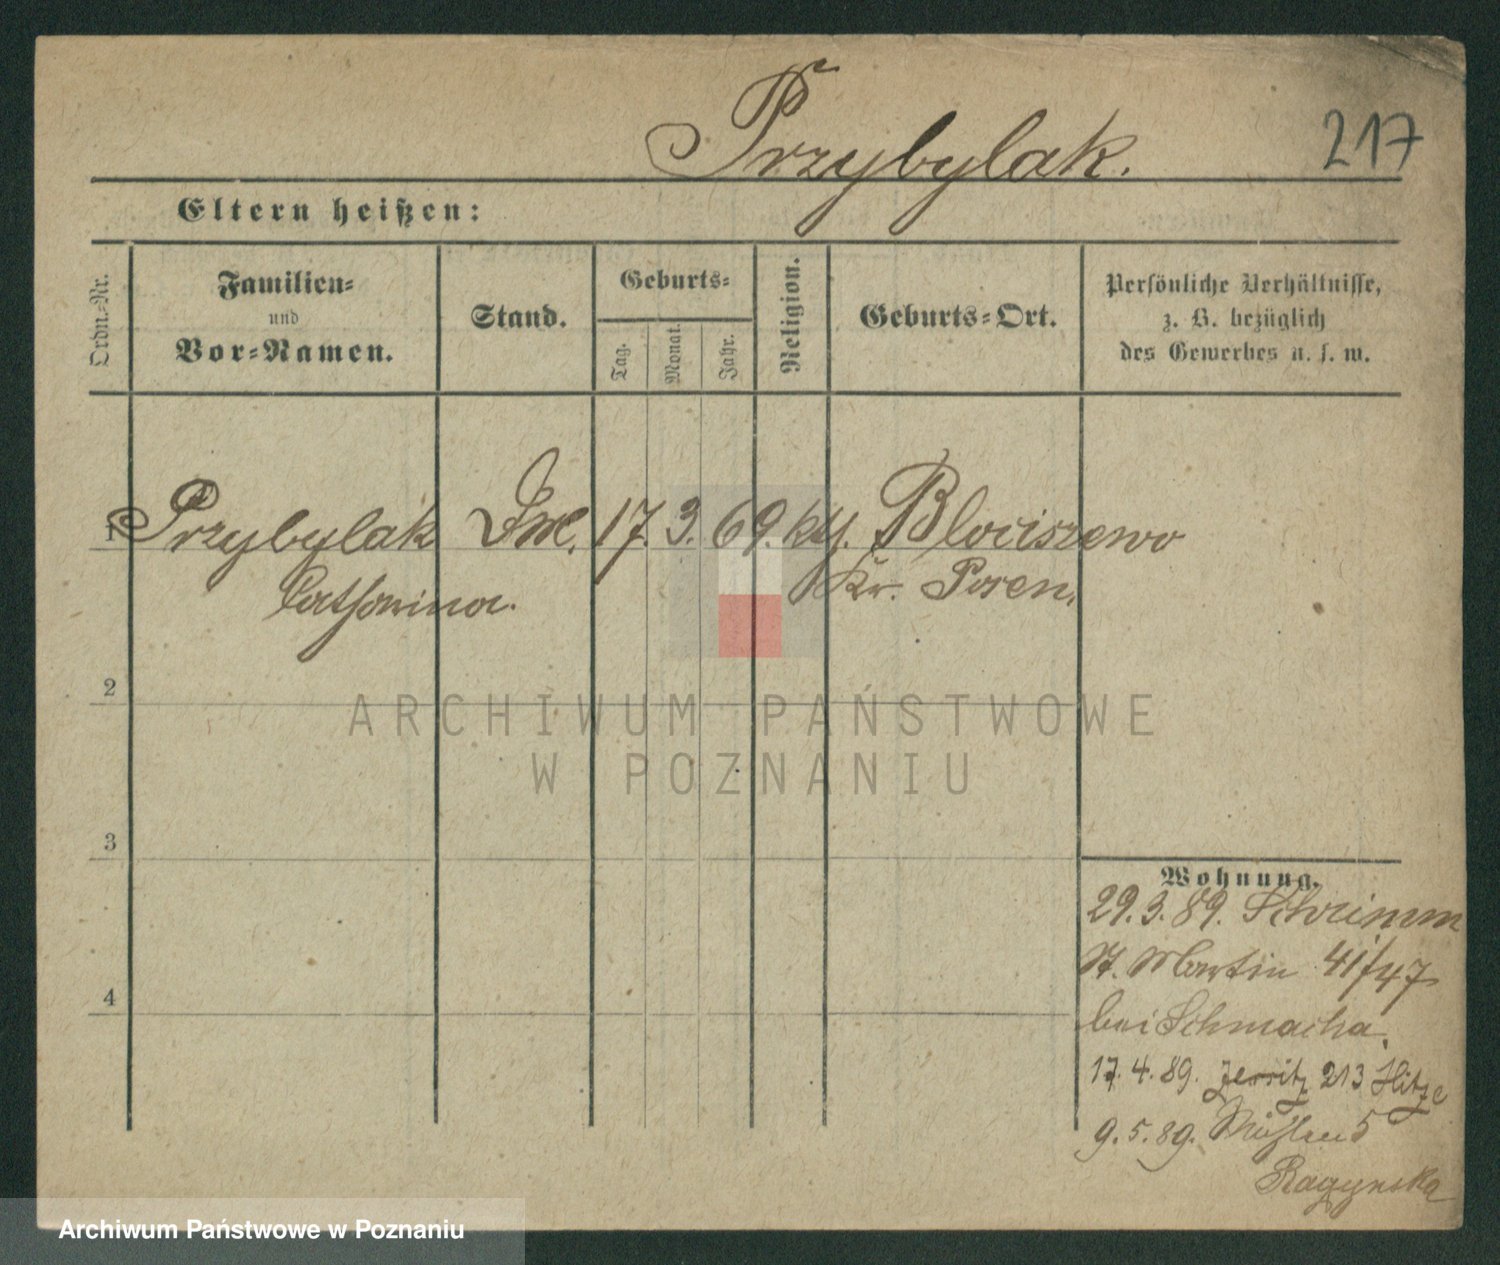 Przybylak.
217
Eltern heißen:
Ordn.-Nr.
Familien-
und
Vor-Namen.
Stand.
Geburts-
Tag.
Monat.
Jahr.
Religion.
Geburts-Ort.
Persönliche Verhältnisse,
z. B. bezüglich
des Gewerbes u. s. w.
1 Przybylak 17. 3. 69. kth. Blociszewo
Catharina. Kr. Posen.
2
ARCHIWUM PAŃSTWOWE
W POZNANIU
3
4
Wohnung.
29. 3. 89. Schrimm
St. Martin 41/47
bei Schmacha.
17. 4. 89. Jersitz 213 Hitze
9. 5. 89. Mühlen 5
Archiwum Państwowe w Poznaniu